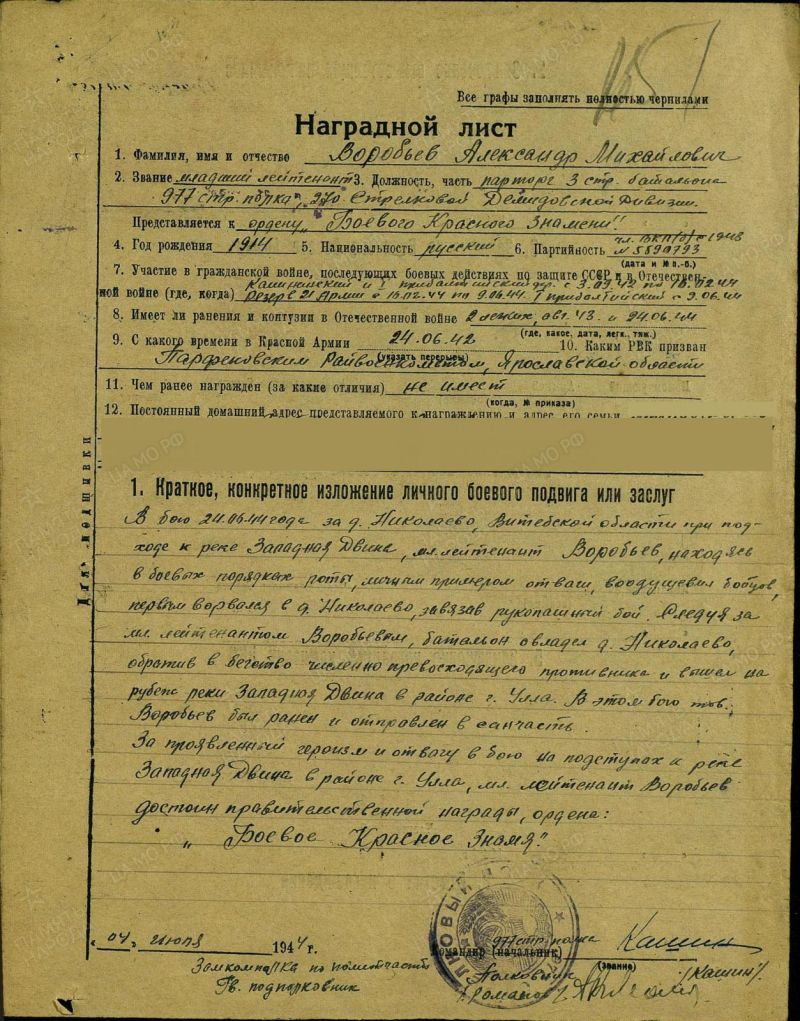 Все графы заполнять полностью чернилами
Наградной лист
1. Фамилия, имя и отчество Воробьев Александр Михайлович
2. Звание младший лейтенант 3. Должность, часть парторг 3 стр. батальона
977 стр. полка, 270 Стрелковой Демидовской Дивизии.
Представляется к ордену „Боевого Красного Знамени"
4. Год рождения 1914 5. Национальность русский 6. Партийность чл. ВКП/б/ с 1943
N 5890793
(дата и № п.-б.)
7. Участие в гражданской войне, последующих боевых действиях по защите СССР и в Отечествен-
ной войне (где, когда) Калининский и I Прибалтийский фр. с 3.09.42 по
резерв 21 Армии с 15.02.44 по 9.06.44 I прибалтийский с 9.06.44
8. Имеет ли ранения и контузии в Отечественной войне 2 легких, авг. 43. и 24.06.44
(где, какое, дата, легк., тяж.)
9. С какого времени в Красной Армии 24.06.42 10. Каким РВК призван
(указать перерывы)
Парфеновским Райвоенкоматом, Ярославской области
11. Чем ранее награжден (за какие отличия) не имеет
(когда, № приказа)
12. Постоянный домашний адрес представляемого к награждению и адрес его семьи
Для подшивки
1. Краткое, конкретное изложение личного боевого подвига или заслуг
В бою 24.06.44 года за д. Николаево, Витебской области при под-
ходе к реке Западная Двина, мл. лейтенант Воробьев, находясь
в боевых порядках роты, личным примером отваги, воодушевил бойцов,
первым ворвался в д. Николаево, завязав рукопашный бой. Следуя за
мл. лейтенантом Воробьевым, батальон овладел д. Николаево,
обратив в бегство численно превосходящего противника и вышел на
рубеж реки Западная Двина в районе г. Улла. В этом бою тов.
Воробьев был ранен и отправлен в санчасть.
За проявленный героизм и отвагу в бою на подступах к реке
Западная Двина в районе г. Улла, мл. лейтенант Воробьев
достоин правительственной награды, ордена:
„Боевое Красное Знамя."
«04» июля 1944 г.
977 стр. полка Кашин
Командир (начальник)
(звание)
Полковник /Кашин/
Замкомполка по политчасти
Гв. подполковник